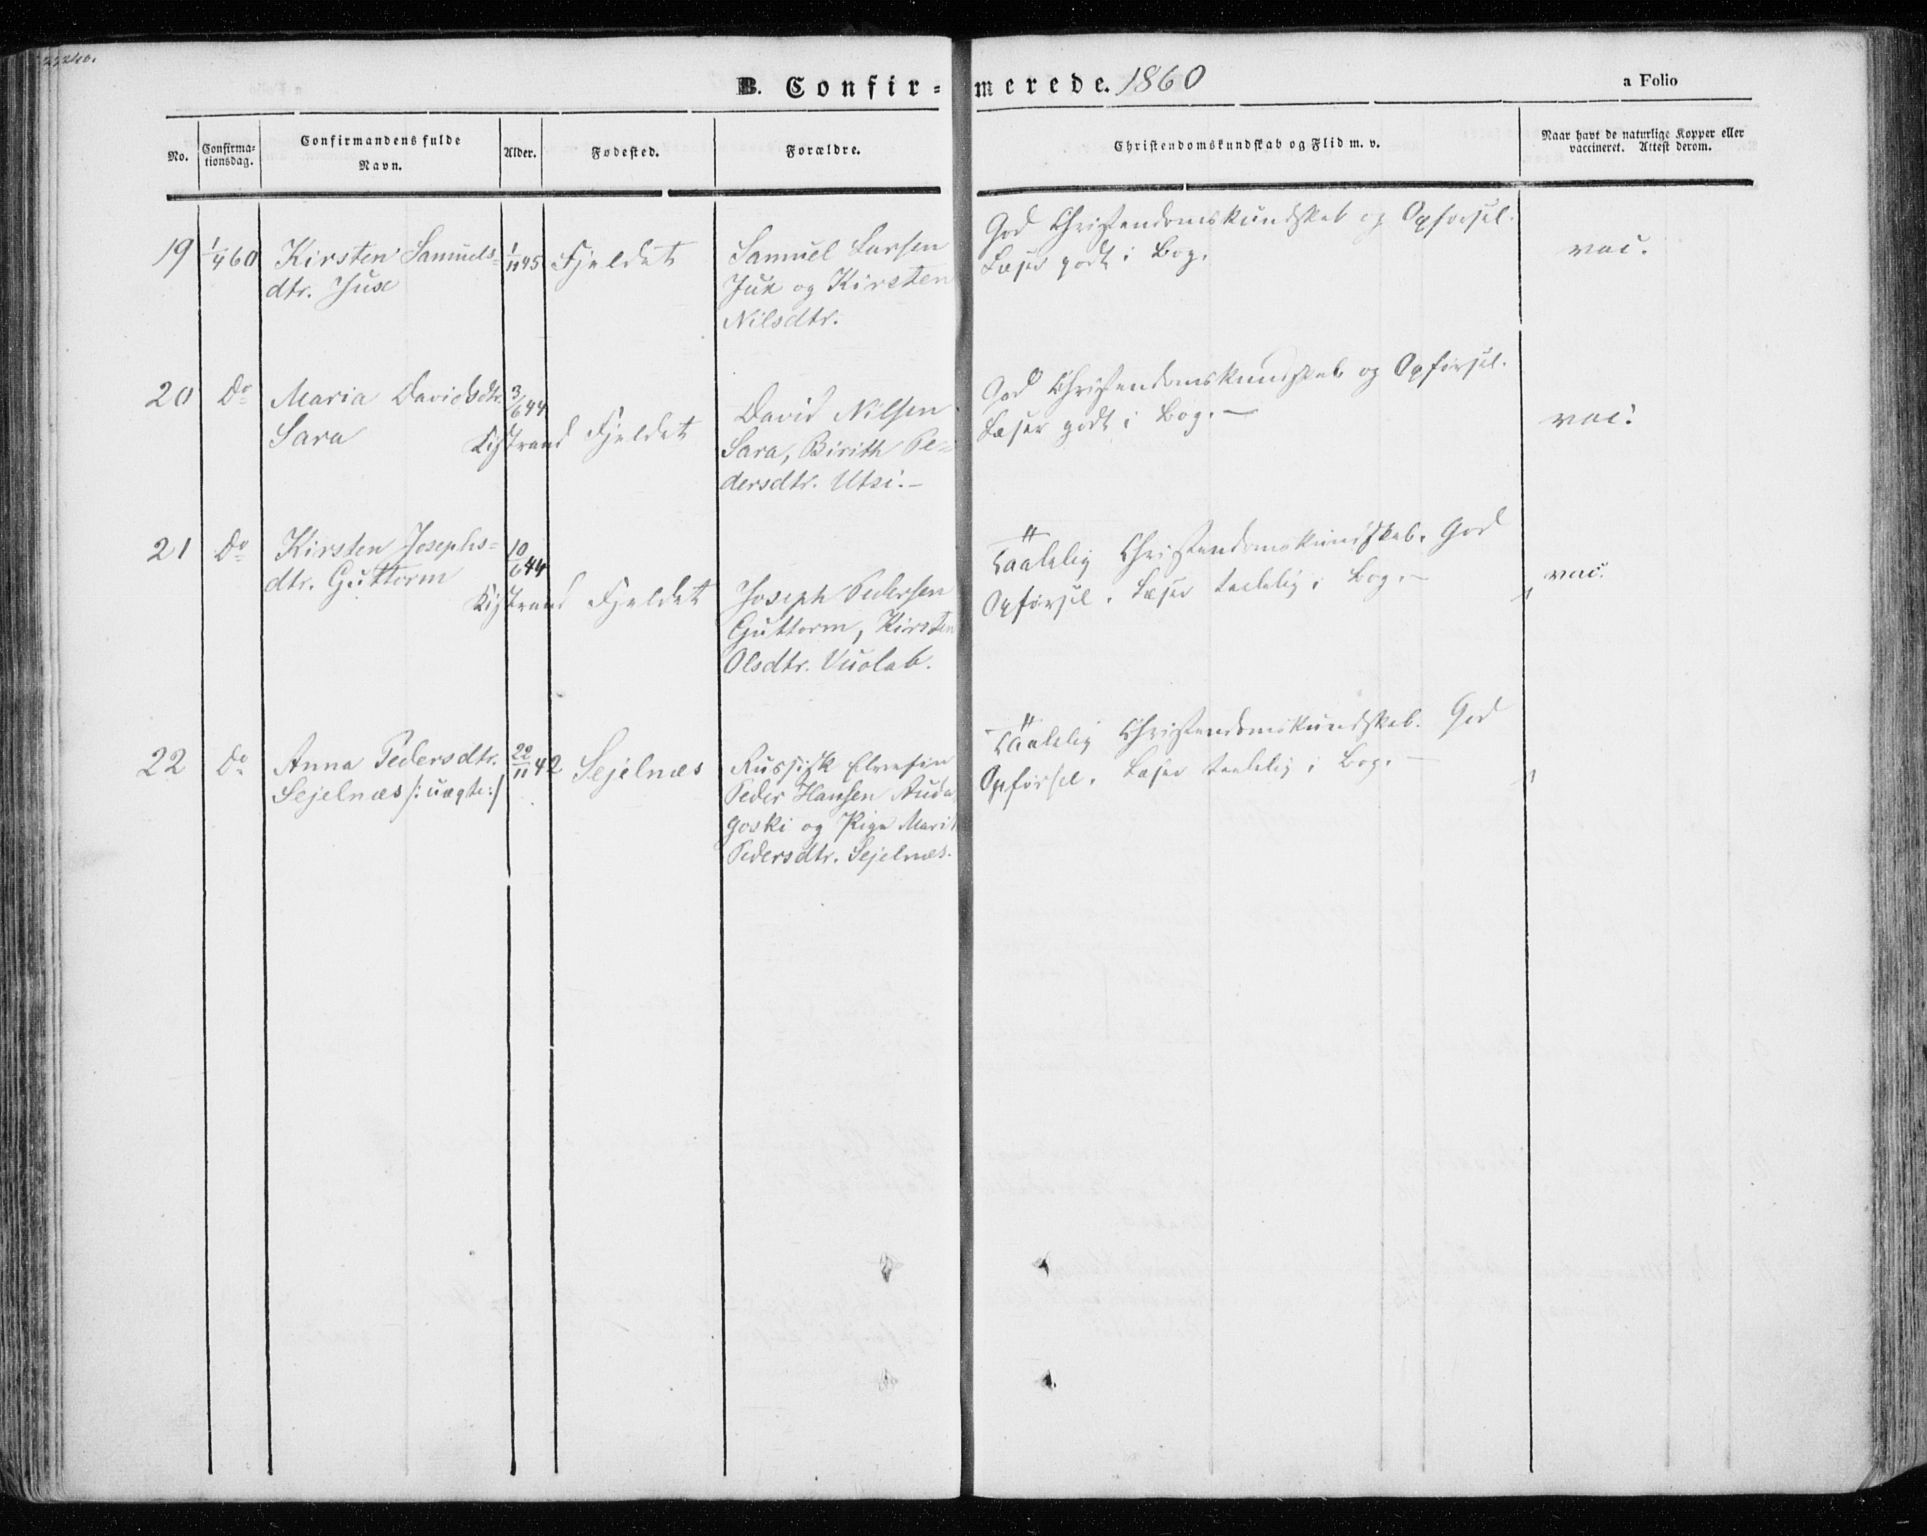 B. Confir=merede. 1860
a Folio
No.
Confirma-
tionsdag.
Confirmandens fulde
Navn.
Alder.
Fødested.
Forældre.
Christendomskundskab og Flid m. v.
Naar havt de naturlige Kopper eller
vaccineret. Attest derom.
19 1/4 60 Kirsten Samuels= 1/11 45 Fjeldet
dtr. Juse
Samuel Larsen
Jux og Kirsten
Nilsdtr.
God Christendomskundskab og Opførsel.
Læser godt i Bog.
vac.
20 Do Maria Davidsdtr. 3/6 44
Sara
Kistrand Fjeldet
David Nilsen
Sara, Birith Pe=
dersdtr. Utsi.—
God Christendomskundskab og Opførsel.
Læser godt i Bog.—
vac.
21 Do Kirsten Josephs= 10/6 44
dtr. Guttorm
Kistrand Fjeldet
Joseph Pedersen
Guttorm, Kirsten
Olsdtr. Vuolab.
Taalelig Christendomskundskab. God
Opførsel. Læser taalelig i Bog.—
vac.
22 Do Anna Pedersdtr. 22/11 42 Sejelnæs
Sejelnæs /:uægte:/
Russisk
Peder Hansen Auda
goski og Pige Marit
Pedersdtr. Sejelnæs.
Taalelig Christendomskundskab. God
Opførsel. Læser taalelig i Bog.—